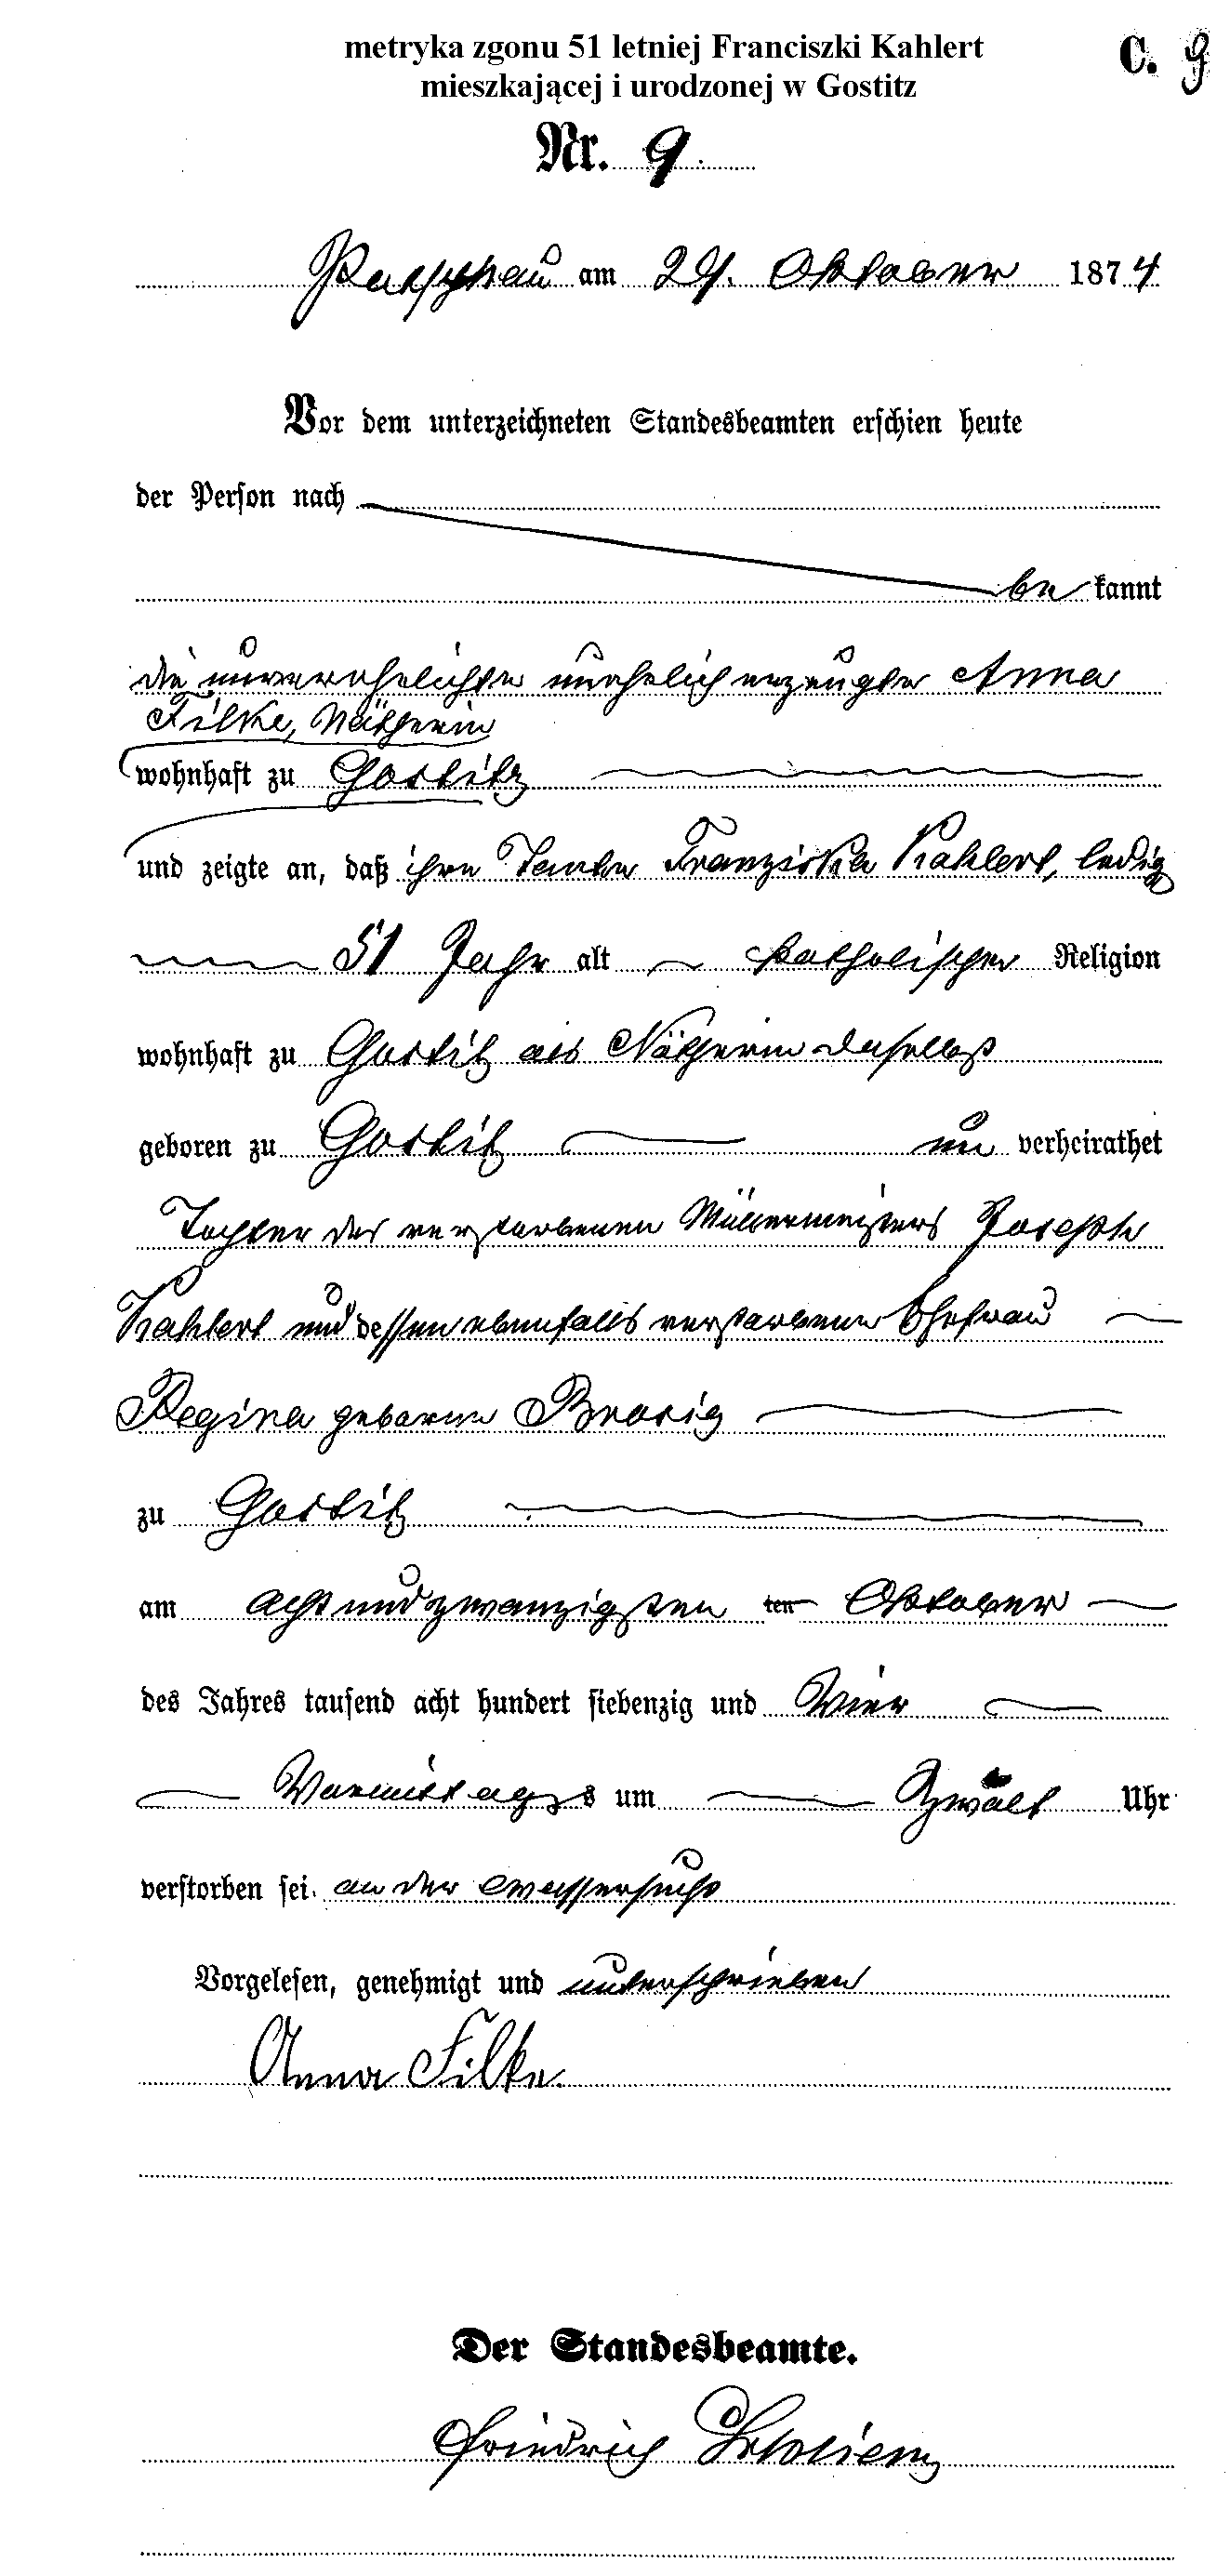 metryka zgonu 51 letniej Franciszki Kahlert
mieszkającej i urodzonej w Gostitz
C. 9
Nr. 9
Patschkau am 29. Oktober 1874
Vor dem unterzeichneten Standesbeamten erschien heute
der Person nach
be kannt
die unverehelichte unehelich erzeugte Anna
Filke, Nätherin
wohnhaft zu Gostitz
und zeigte an, daß ihre Tante Franziska Kahlert, ledig
51 Jahr alt katholischer Religion
wohnhaft zu Gostitz als Nätherin daselbst
geboren zu Gostitz un verheirathet
Tochter des verstorbenen Müllermeisters Joseph
Kahlert und dessen ebenfalls verstorbene Ehefrau
Regina geborene Brosig
zu Gostitz
am acht und zwanzigsten ten Oktober
des Jahres tausend acht hundert siebenzig und Vier
Vormittags um Zwölf Uhr
verstorben sei. an der Wassersucht
Vorgelesen, genehmigt und unterschrieben
Anna Filke.
Der Standesbeamte.
Friedrich